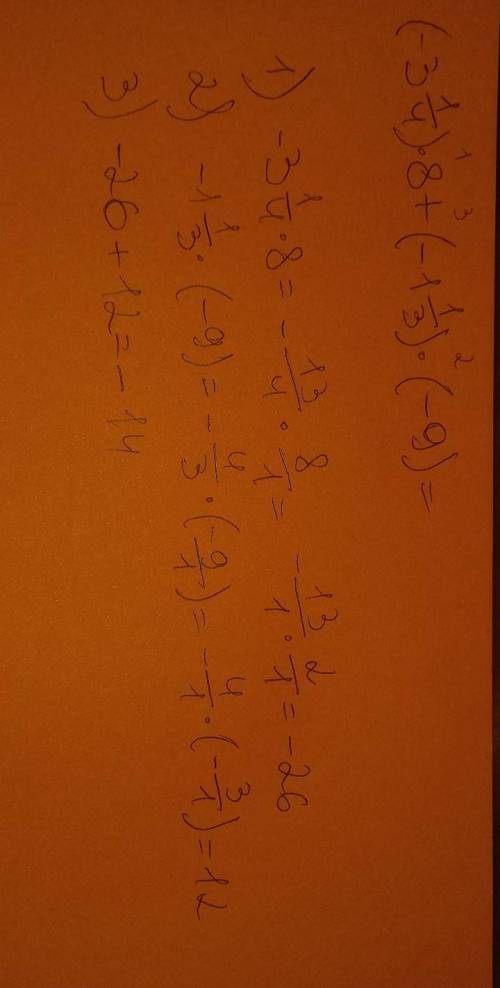 (-3 1/4)·¹ 8 +³ (-1 1/3)·² (-9) =
1) -3 1/4 · 8 = - 13/4 · 8/1 = - 13/1 · 2/1 = -26
2) -1 1/3 · (-9) = - 4/3 · (-9/1) = - 4/1 · (- 3/1) = 12
3) -26 + 12 = - 14